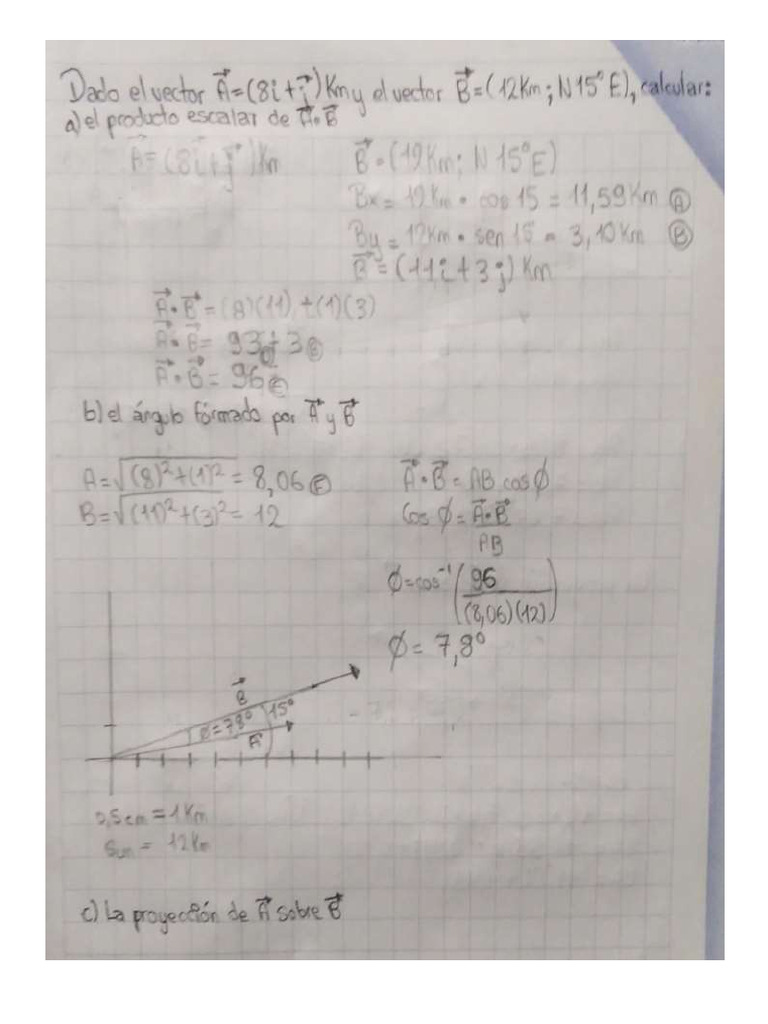 Dado el vector A⃗=(8i+j⃗)Km y el vector B⃗=(12Km; N15°E), calcular:
a) el producto escalar de A⃗•B⃗
A⃗=(8i+j⃗)Km
B⃗=(12Km; N15°E)
Bx= 12Km • cos 15 = 11,59Km Ⓐ
By= 12Km • sen 15 = 3,10Km Ⓑ
B⃗=(11i+3j)Km
A⃗•B⃗=(8)(11)+(1)(3)
A⃗•B⃗= 93+3
A⃗•B⃗= 96
b) el ángulo fórmado por A⃗ y B⃗
A=√(8)²+(1)² = 8,06 Ⓔ
B=√(11)²+(3)² = 12
A⃗•B⃗= AB cos∅
Cos ∅= A⃗•B⃗
AB
∅=cos⁻¹(96
(8,06)(12))
∅= 7,8°
B⃗
15°
∅=7,8°
A⃗
0,5cm = 1Km
= 12Km
c) La proyección de A⃗ sobre B⃗